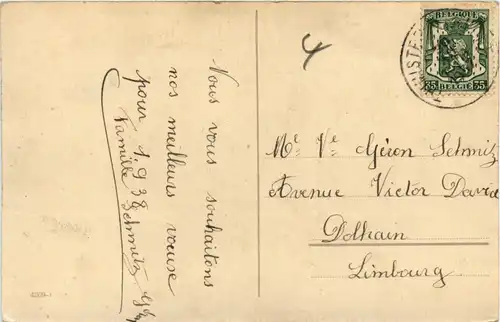 Vous vous souhaitons
nos meilleurs vœuse
pour 1938
Famille Schmitz
4
BELGIQUE
35 35
BELGIE
Me Ve Géron Schmitz
Avenue Victor
Dolhain
Limbourg